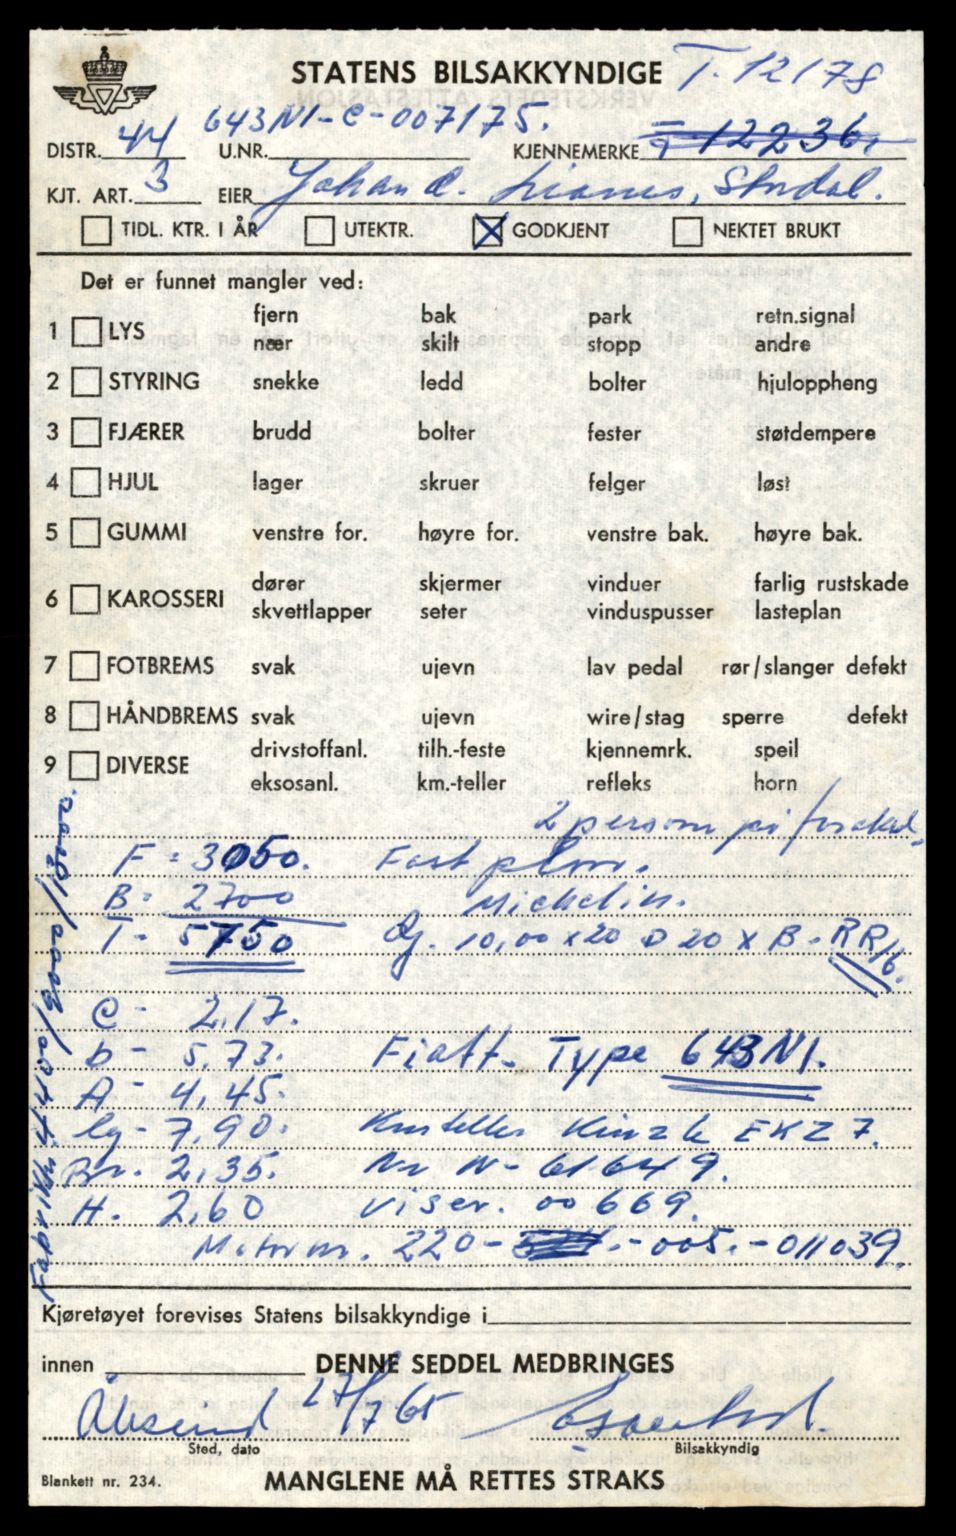 STATENS BILSAKKYNDIGE T-12178
643N1-C-007175.
DISTR. 44 U.NR. KJENNEMERKE T-12236.
KJT. ART. 3 EIER Johan
TIDL. KTR. I ÅR UTEKTR. GODKJENT NEKTET BRUKT
Det er funnet mangler ved:
1 LYS fjern bak park retn.signal
nær skilt stopp andre
2 STYRING snekke ledd bolter hjuloppheng
3 FJÆRER brudd bolter fester støtdempere
4 HJUL lager skruer felger løst
5 GUMMI venstre for. høyre for. venstre bak. høyre bak.
6 KAROSSERI dører skjermer vinduer farlig rustskade
skvettlapper seter vinduspusser lasteplan
7 FOTBREMS svak ujevn lav pedal rør/slanger defekt
8 HÅNDBREMS svak ujevn wire/stag sperre defekt
9 DIVERSE drivstoffanl. tilh.-feste kjennemrk. speil
eksosanl. km.-teller refleks horn
2 person på
F = 3050. Fast plan.
B = 2700 Michelin.
T - 5750 10,00 x 20 D 20 X B - RR/16.
C - 2,17.
b - 5,73. Fiatt - Type 643N1.
A - 4,45.
lg - 7,90. Kinzle EKZ 7.
Br. 2,35. Nr N - 61649.
H. 2,60 viser. 00669.
Motornr. 220 - - 005. - 011039.
Kjøretøyet forevises Statens bilsakkyndige i
innen DENNE SEDDEL MEDBRINGES
Ålesund 27/7 65
Sted, dato Bilsakkyndig
Blankett nr. 234. MANGLENE MÅ RETTES STRAKS